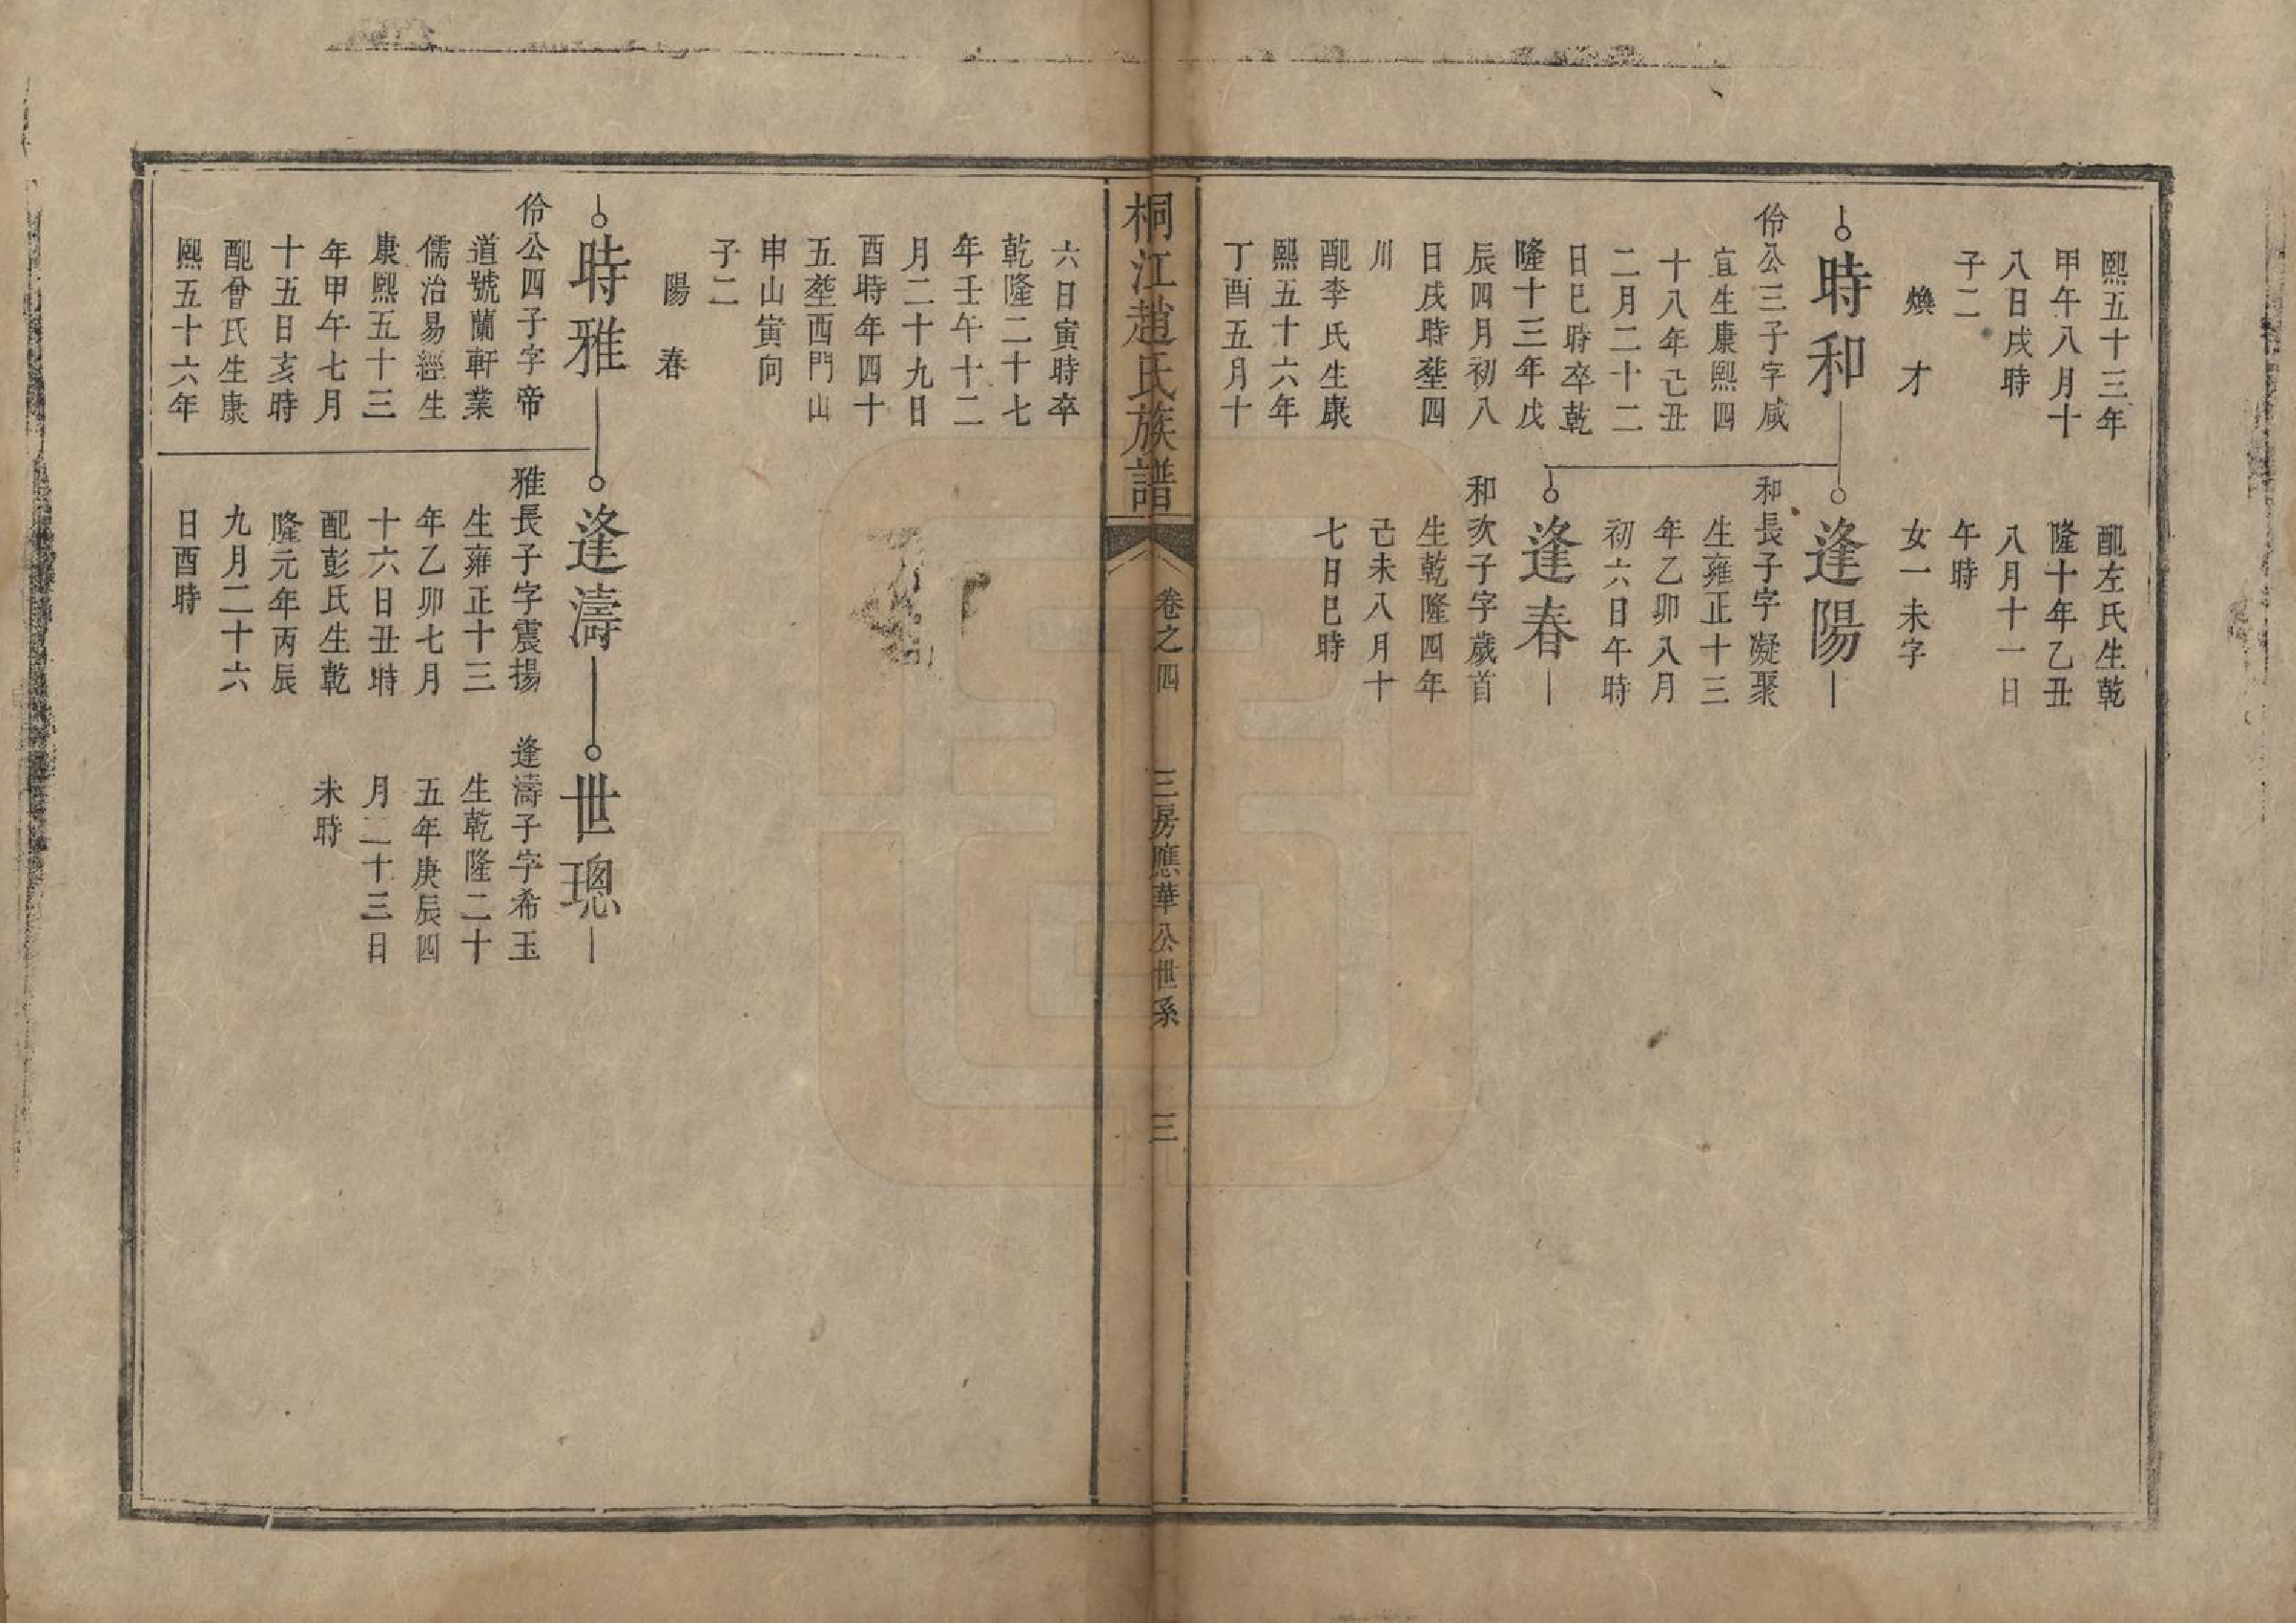 熈五十三年
甲午八月十
八日戌時
子二
煥　才
配左氏生乾
隆十年乙丑
八月十一日
午時
女一未字
時和
伶公三子字咸
宜生康熈四
十八年己丑
二月二十二
日巳時卒乾
隆十三年戊
辰四月初八
日戌時塟四
川
配李氏生康
熈五十六年
丁酉五月十
逢陽
和長子字凝聚
生雍正十三
年乙卯八月
初六日午時
逢春
和次子字歲首
生乾隆四年
己未八月十
七日巳時
桐江趙氏族譜
卷之四
三房應華公世系
三
六日寅時卒
乾隆二十七
年壬午十二
月二十九日
酉時年四十
五塟西門山
申山寅向
子二
陽　春
時雅
伶公四子字帝
道號蘭軒業
儒治易經生
康熈五十三
年甲午七月
十五日亥時
配曾氏生康
熈五十六年
逢濤
雅長子字震揚
生雍正十三
年乙卯七月
十六日丑時
配彭氏生乾
隆元年丙辰
九月二十六
日酉時
世璁
逢濤子字希玉
生乾隆二十
五年庚辰四
月二十三日
未時